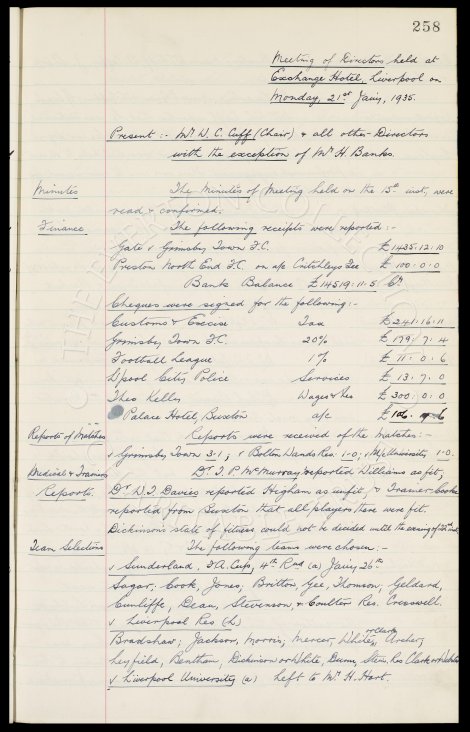 258
Meeting of Directors held at
Exchange Hotel, Liverpool on
Monday, 21st Jany, 1935.
Present :- Mr W. C. Cuff (Chair) & all other Directors
with the exception of Mr H. Banks.
Minutes The Minutes of Meeting held on the 15th inst, were
read & confirmed.
Finance The following receipts were reported :-
Gate v Grimsby Town F.C. £ 1435.12.10
Preston North End F.C. on a/c Critchleys Fee £ 100.0.0
Bank Balance £14519.11.5 Cr
Cheques were signed for the following :-
Customs & Excise Tax £ 241.16.11
Grimsby Town F.C. 20% £ 179.7.4
Football League 1% £ 11.0.6
L'pool City Police Services £ 13.7.0
Theo Kelly Wages & Fees £ 300.0.0
Palace Hotel, Buxton a/c £ 106.
Reports of Matches Reports were received of the Matches :-
v Grimsby Town 3-1; v Bolton Wands Res. 1-0; v University 1-0.
Medical & Trainers Dr. J. P. McMurray reported Williams as fit,
Reports. Dr W. J. Davies reported Higham as unfit, & Trainer Cooke
reported from Buxton that all players there were fit.
Dickinson's state of fitness could not be decided until the evening of inst
Team Selections The following teams were chosen :-
v Sunderland, F.A. Cup, 4th Rnd (a) Jany 26th
Sagar; Cook, Jones; Britton, Gee, Thomson; Geldard,
Cunliffe, Dean, Stevenson, & Coulter Res. Cresswell.
v Liverpool Res (h)
Bradshaw; Jackson, Morris; Mercer, White or Clark, Archer;
Leyfield, Bentham, Dickinson or White, Dunn, Stein Res Clark or White
v Liverpool University (a) Left to Mr H. Hart.